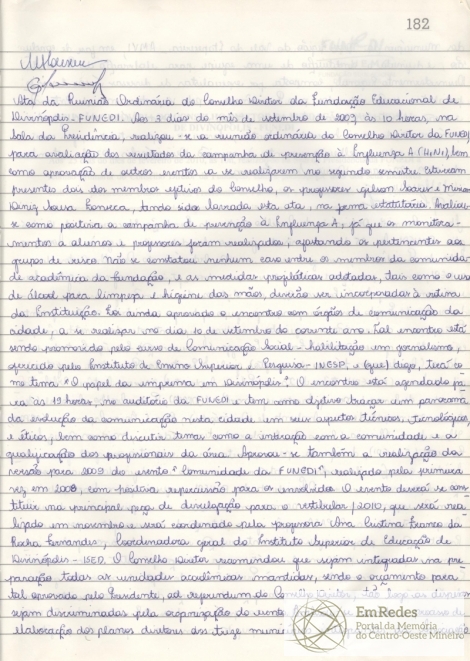 182
Ata da Reunião Ordinária do Conselho Diretor da Fundação Educacional de
Divinópolis - FUNEDI. Aos 3 dias do mês de setembro de 2009, às 10 horas, na
Sala da Presidência, realizou-se a reunião ordinária do Conselho Diretor da FUNEDI
para avaliação dos resultados da campanha de prevenção à Influenza A (H1N1), bem
como aprovação de outros eventos a se realizarem no segundo semestre. Estavam
presentes dois dos membros efetivos do Conselho, os professores Gilson Soares e
Diniz Sousa Fonseca, tendo sido lavrada esta ata, na forma estatutária. Avaliou-
se como positiva a campanha de prevenção à Influenza A, já que os monitora-
mentos a alunos e professores foram realizados, afastando os pertencentes aos
grupos de risco. Não se constatou nenhum caso entre os membros da comunida-
de acadêmica da Fundação, e as medidas profiláticas adotadas, tais como o uso
de álcool para limpeza e higiene das mãos, deverão ser incorporadas à rotina
da Instituição. Foi ainda aprovado o encontro com órgãos de comunicação da
cidade, a se realizar no dia 10 de setembro do corrente ano. Tal encontro está
sendo promovido pelo curso de Comunicação Social - habilitação em jornalismo,
oferecido pelo Instituto de Ensino Superior e Pesquisa - INESP, e (que) digo, terá co-
mo tema "O papel da imprensa em Divinópolis". O encontro está agendado pa-
ra às 19 horas, no auditório da FUNEDI e tem como objetivo traçar um panorama
da evolução da comunicação nesta cidade em seus aspectos técnicos, tecnológicos
e éticos, bem como discutir temas como a interação com a comunidade e a
qualificação dos profissionais da área. Aprovou-se também a realização da
versão para 2009 do evento "Comunidade da FUNEDI", realizado pela primeira
vez em 2008, com positiva repercussão para os envolvidos. O evento deverá se cons-
tituir na principal peça de divulgação para o vestibular/2010, que será rea-
lizado em novembro e será coordenado pela professora Ana Cristina Franco da
Rocha Fernandes, Coordenadora geral do Instituto Superior de Educação de
Divinópolis - ISED. O Conselho Diretor recomendou que sejam integradas na pre-
paração todas as unidades acadêmicas mantidas, sendo o orçamento para
tal aprovado pelo Presidente, ad referendum do Conselho Diretor, tão logo as
sejam discriminadas pela organização do evento
elaboração dos planos diretores dos treze
EmRedes
Portal da Memória
do Centro-Oeste Mineiro